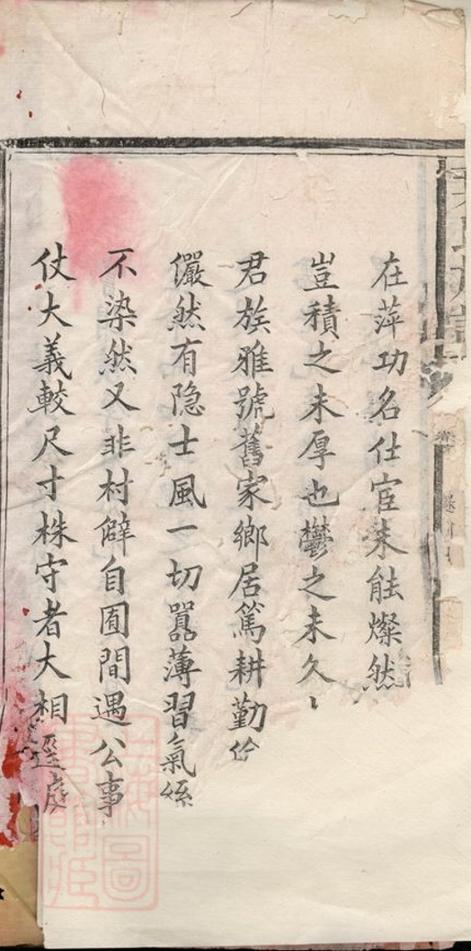 在萍功名仕宦未能燦然
豈積之未厚也鬱之未久
君族雅號舊家鄉居篤耕勤
儼然有隐士風一切囂薄習氣
不染然又非村僻自囿間遇公事
仗大義較尺寸株守者大相逕庭